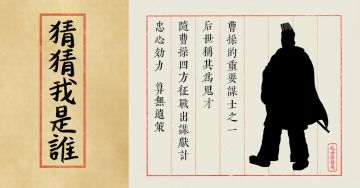 猜猜我是誰
曹操的重要謀士之一
后世稱其為鬼才
隨曹操四方征戰出謀獻計
忠心効力 算無遺策